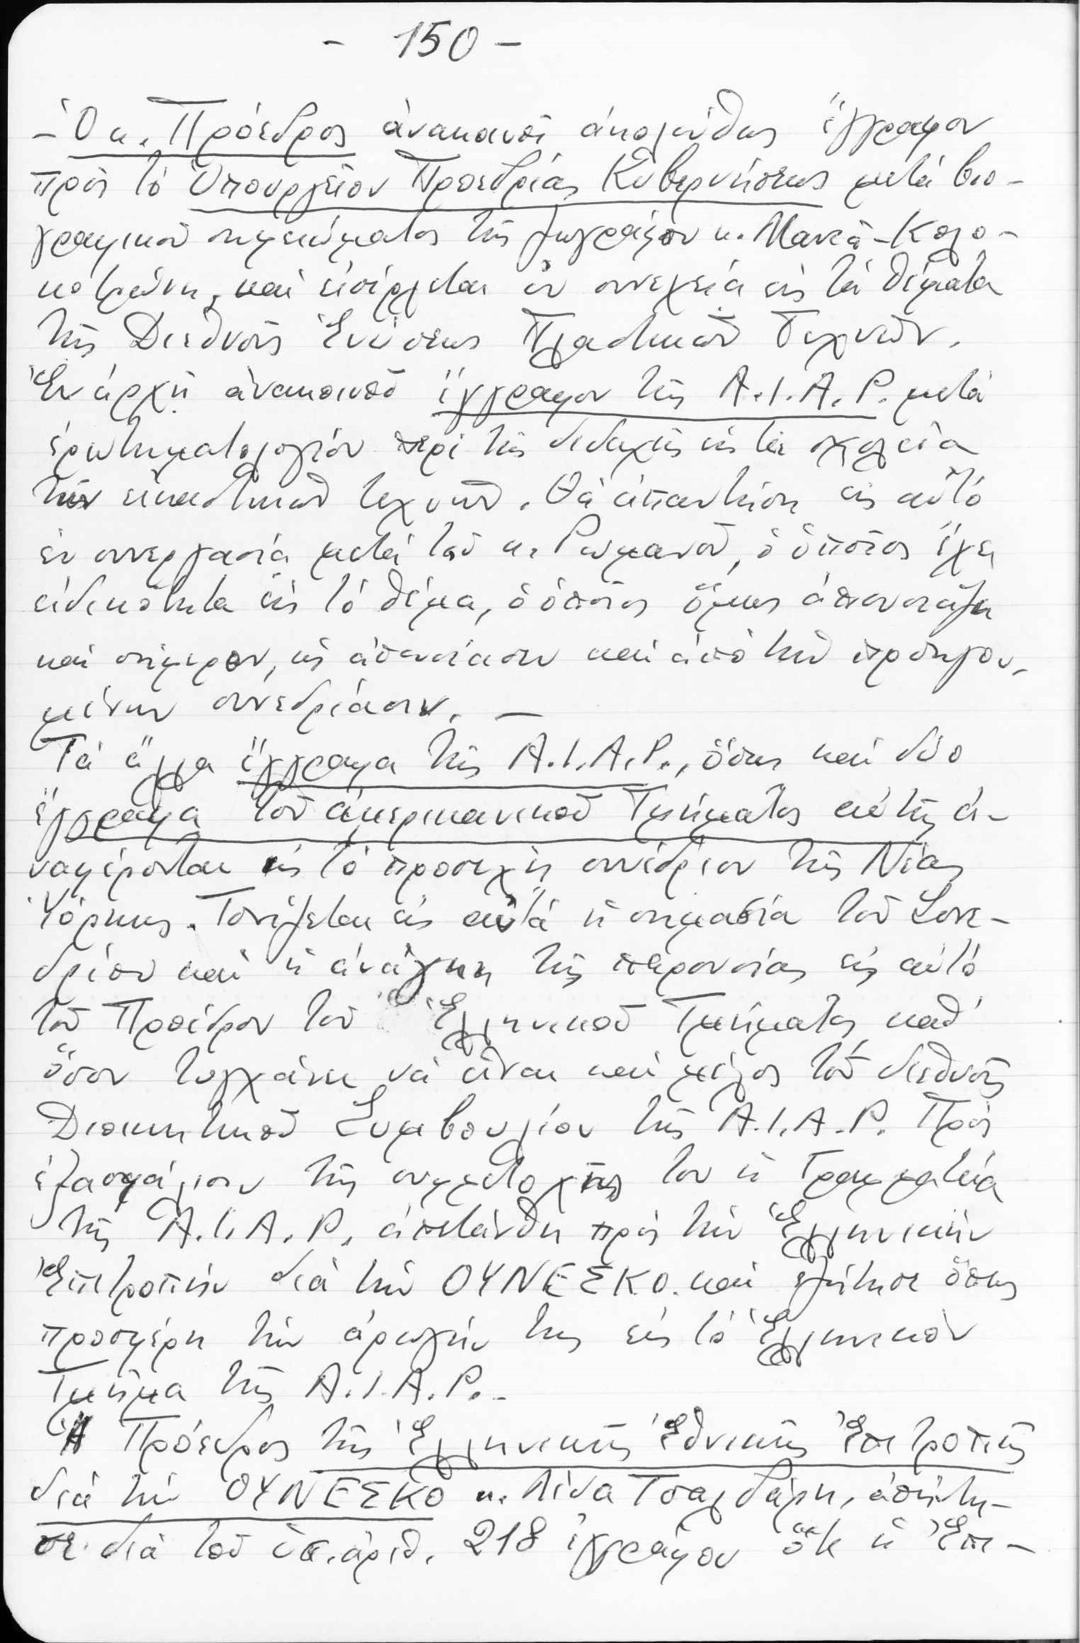 - 150 -
- Ὁ κ. Πρόεδρος ἀνακοινοῖ ἀκολούθως ἔγγραφον
πρὸς τὸ Ὑπουργεῖον Προεδρίας Κυβερνήσεως μετὰ βιο-
γραφικοῦ σημειώματος τῆς ζωγράφου κ. Μαντᾶ-Κολο-
κοτρώνη, καὶ εἰσέρχεται ἐν συνεχείᾳ εἰς τὰ θέματα
τῆς Διεθνοῦς Ἑνώσεως Πλαστικῶν Τεχνῶν.
Ἐν ἀρχῇ ἀνακοινοῖ ἔγγραφον τῆς A.I.A.P. μετὰ
ἐρωτηματολογίου περὶ τῆς διδαχῆς εἰς τὰ σχολεῖα
τῶν εἰκαστικῶν τεχνῶν. Θὰ ἀπαντήση εἰς αὐτὸ
ἐν συνεργασίᾳ μετὰ τοῦ κ. Ρωμανοῦ, ὁ ὁποῖος ἔχει
εἰδικότητα εἰς τὸ θέμα, ὁ ὁποῖος ὅμως ἀπουσιάζει
καὶ σήμερον, ὡς ἀπουσίασεν καὶ ἀπὸ τὴν προηγου-
μένην συνεδρίασιν. -
Τὰ ἄλλα ἔγγραφα τῆς A.I.A.P., ὅπως καὶ δύο
ἔγγραφα τοῦ ἀμερικανικοῦ Τμήματος αὐτῆς ἀ-
ναφέρονται εἰς τὸ προσεχὲς συνέδριον τῆς Νέας
Ὑόρκης. Τονίζεται εἰς αὐτὰ ἡ σημασία τοῦ Συνε-
δρίου καὶ ἡ ἀνάγκη τῆς παρουσίας εἰς αὐτὸ
τοῦ Προέδρου τοῦ Ἑλληνικοῦ Τμήματος καθ'
ὅσον τυγχάνει νὰ εἶναι καὶ μέλος τοῦ διεθνοῦς
Διοικητικοῦ Συμβουλίου τῆς A.I.A.P. Πρὸς
ἐξασφάλισιν τῆς συμμετοχῆς του ἡ Γραμματεία
τῆς A.I.A.P. ἀπετάνθη πρὸς τὴν Ἑλληνικὴν
Ἐπιτροπὴν διὰ τὴν ΟΥΝΕΣΚΟ. καὶ ἐζήτησε ὅπως
προσφέρη τὴν ἀρωγήν της εἰς τὸ Ἑλληνικὸν
Τμῆμα τῆς A.I.A.P. -
Ἡ Πρόεδρος τῆς Ἑλληνικῆς Ἐθνικῆς Ἐπιτροπῆς
διὰ τὴν ΟΥΝΕΣΚΟ κ. Λίνα Τσαλδάρη, ἀπήντη-
σε διὰ τοῦ ὑπ. ἀριθ. 218 ἐγγράφου ὅτι ἡ Ἐπι-